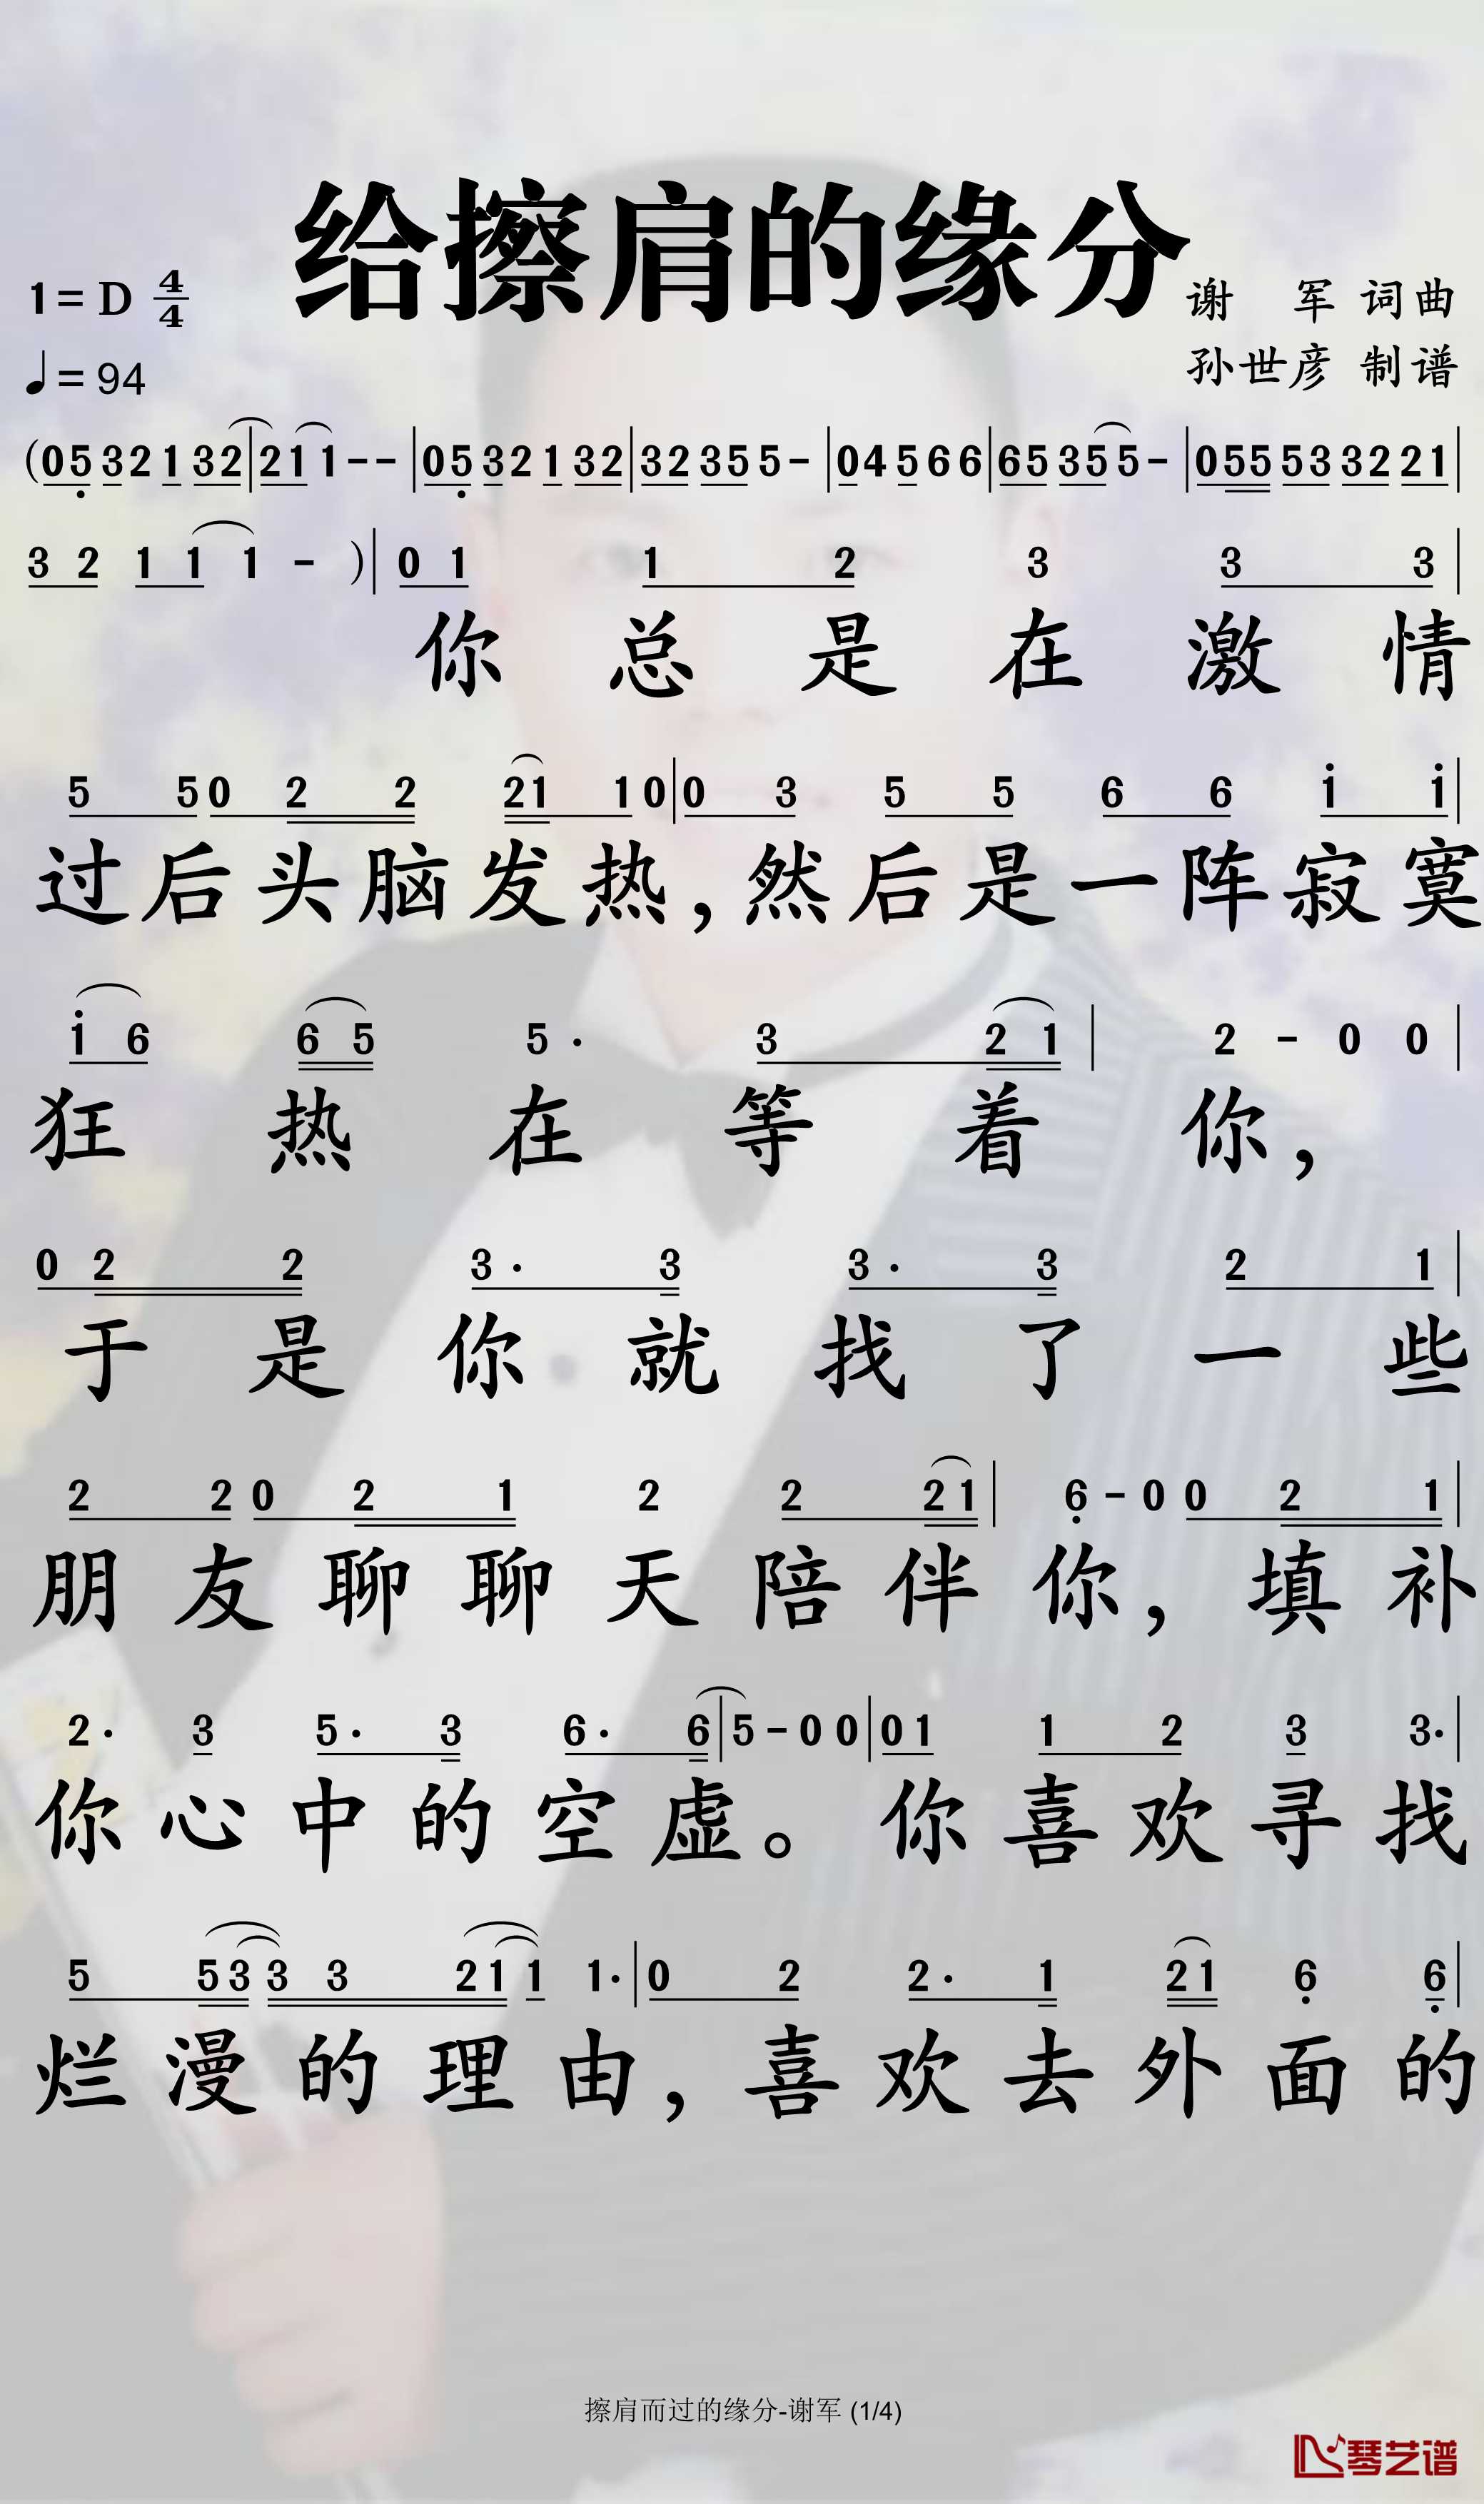 给擦肩的缘分
1=D 4/4
谢 军 词曲
♩=94
孙世彦 制谱
(05321 32|211--|05321 32|32355-|04566|65355-|055533221|
3 2 1 1 1 - )|0 1 1 2 3 3 3|
你总是在激情
5 5 0 2 2 21 1 0|0 3 5 5 6 6 i i|
过后头脑发热,然后是一阵寂寞
i 6 6 5 5· 3 2 1| 2 - 0 0|
狂热在等着你,
0 2 2 3· 3 3· 3 2 1|
于是你就找了一些
2 2 0 2 1 2 2 2 1| 6 - 0 0 2 1|
朋友聊聊天陪伴你,填补
2· 3 5· 3 6· 6|5 - 0 0|0 1 1 2 3 3·|
你心中的空虚。你喜欢寻找
5 5 3 3 3 2 1 1 1·|0 2 2· 1 2 1 6 6|
烂漫的理由,喜欢去外面的
擦肩而过的缘分-谢军 (1/4)
琴艺谱